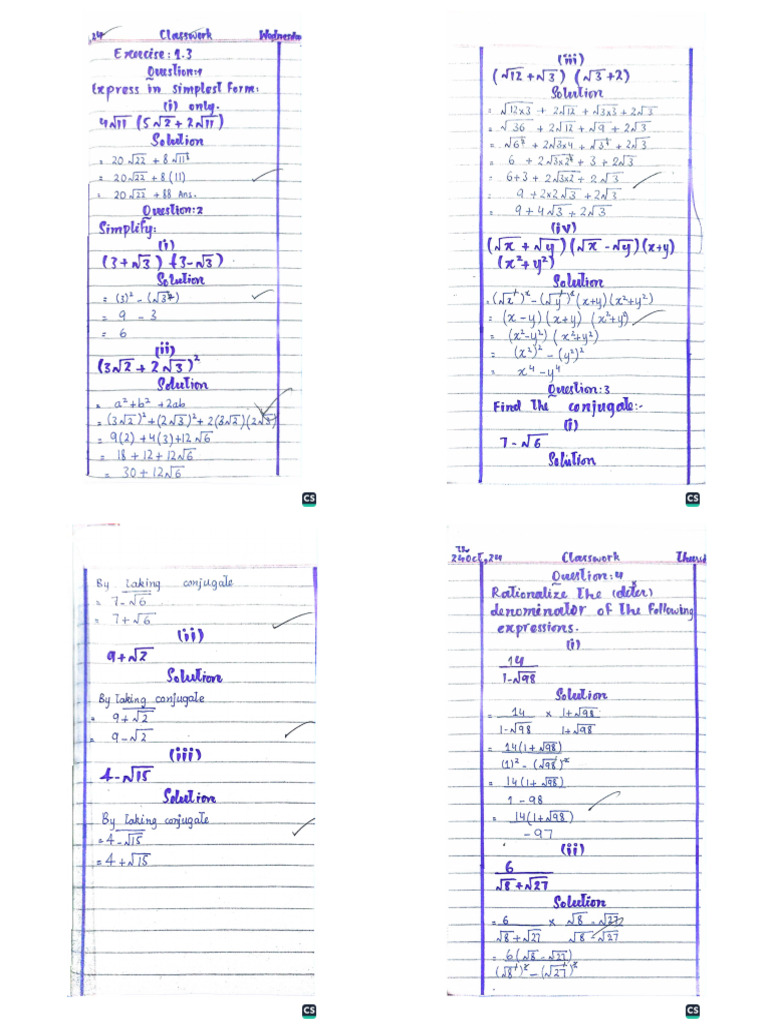 24 Classwork Wednesda
Exercise: 1.3
Question:1
Express in simplest form:
(i) only.
4√11 (5√2 + 2√11)
Solution
= 20√22 + 8√11²
= 20√22 + 8(11)
= 20√22 + 88 Ans.
Question:2
Simplify:
(i)
(3+√3) (3-√3)
Solution
= (3)² - (√3)²
= 9 - 3
= 6
(ii)
(3√2 + 2√3)²
Solution
= a²+b² +2ab
= (3√2)²+(2√3)²+2(3√2)(2√3)
= 9(2) +4(3)+12√6
= 18 + 12 + 12√6
= 30 + 12√6
CS
(iii)
(√12 + √3) (√3+2)
Solution
= √12×3 + 2√12 + √3×3 + 2√3
= √36 + 2√12 + √9 + 2√3
= √6² + 2√3×4 + √3² + 2√3
= 6 + 2√3×2² + 3 + 2√3
= 6+3 + 2√3×2² + 2√3
= 9 + 2×2√3 + 2√3
= 9 + 4√3 + 2√3
(iv)
(√x + √y)(√x - √y)(x+y)
(x²+y²)
Solution
= (√x)² - (√y)² (x+y) (x²+y²)
= (x-y) (x+y) (x²+y²)
= (x²-y²) (x²+y²)
= (x²)² - (y²)²
= x⁴ - y⁴
Question:3
Find the conjugate:-
(i)
7-√6
Solution
CS
By taking conjugate
= 7-√6
= 7+√6
(ii)
9+√2
Solution
By taking conjugate
= 9+√2
= 9-√2
(iii)
4-√15
Solution
By taking conjugate
= 4-√15
= 4+√15
CS
24 Oct, 24 Classwork Thursd
Question:4
Rationalize the (deter)
denominator of the following
expressions.
(i)
14
1-√98
Solution
= 14 × 1+√98
1-√98 1+√98
= 14(1+√98)
(1)² - (√98)²
= 14(1+√98)
1-98
= 14(1+√98)
-97
(ii)
6
√8+√27
Solution
= 6 × √8-√27
√8+√27 √8-√27
= 6(√8-√27)
(√8)² - (√27)²
CS